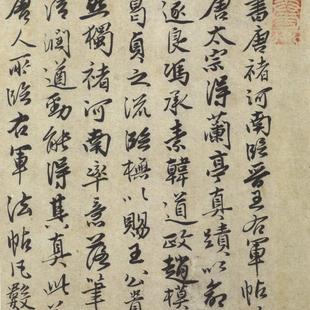 書唐褚河南臨晉王右軍帖
唐太宗得蘭亭真蹟以命
遂良馮承素韓道政趙模
葛貞之流臨橅以賜王公貴
然獨褚河南率意落筆
清潤遒勁能得其真此
唐人所臨右軍法帖凡數